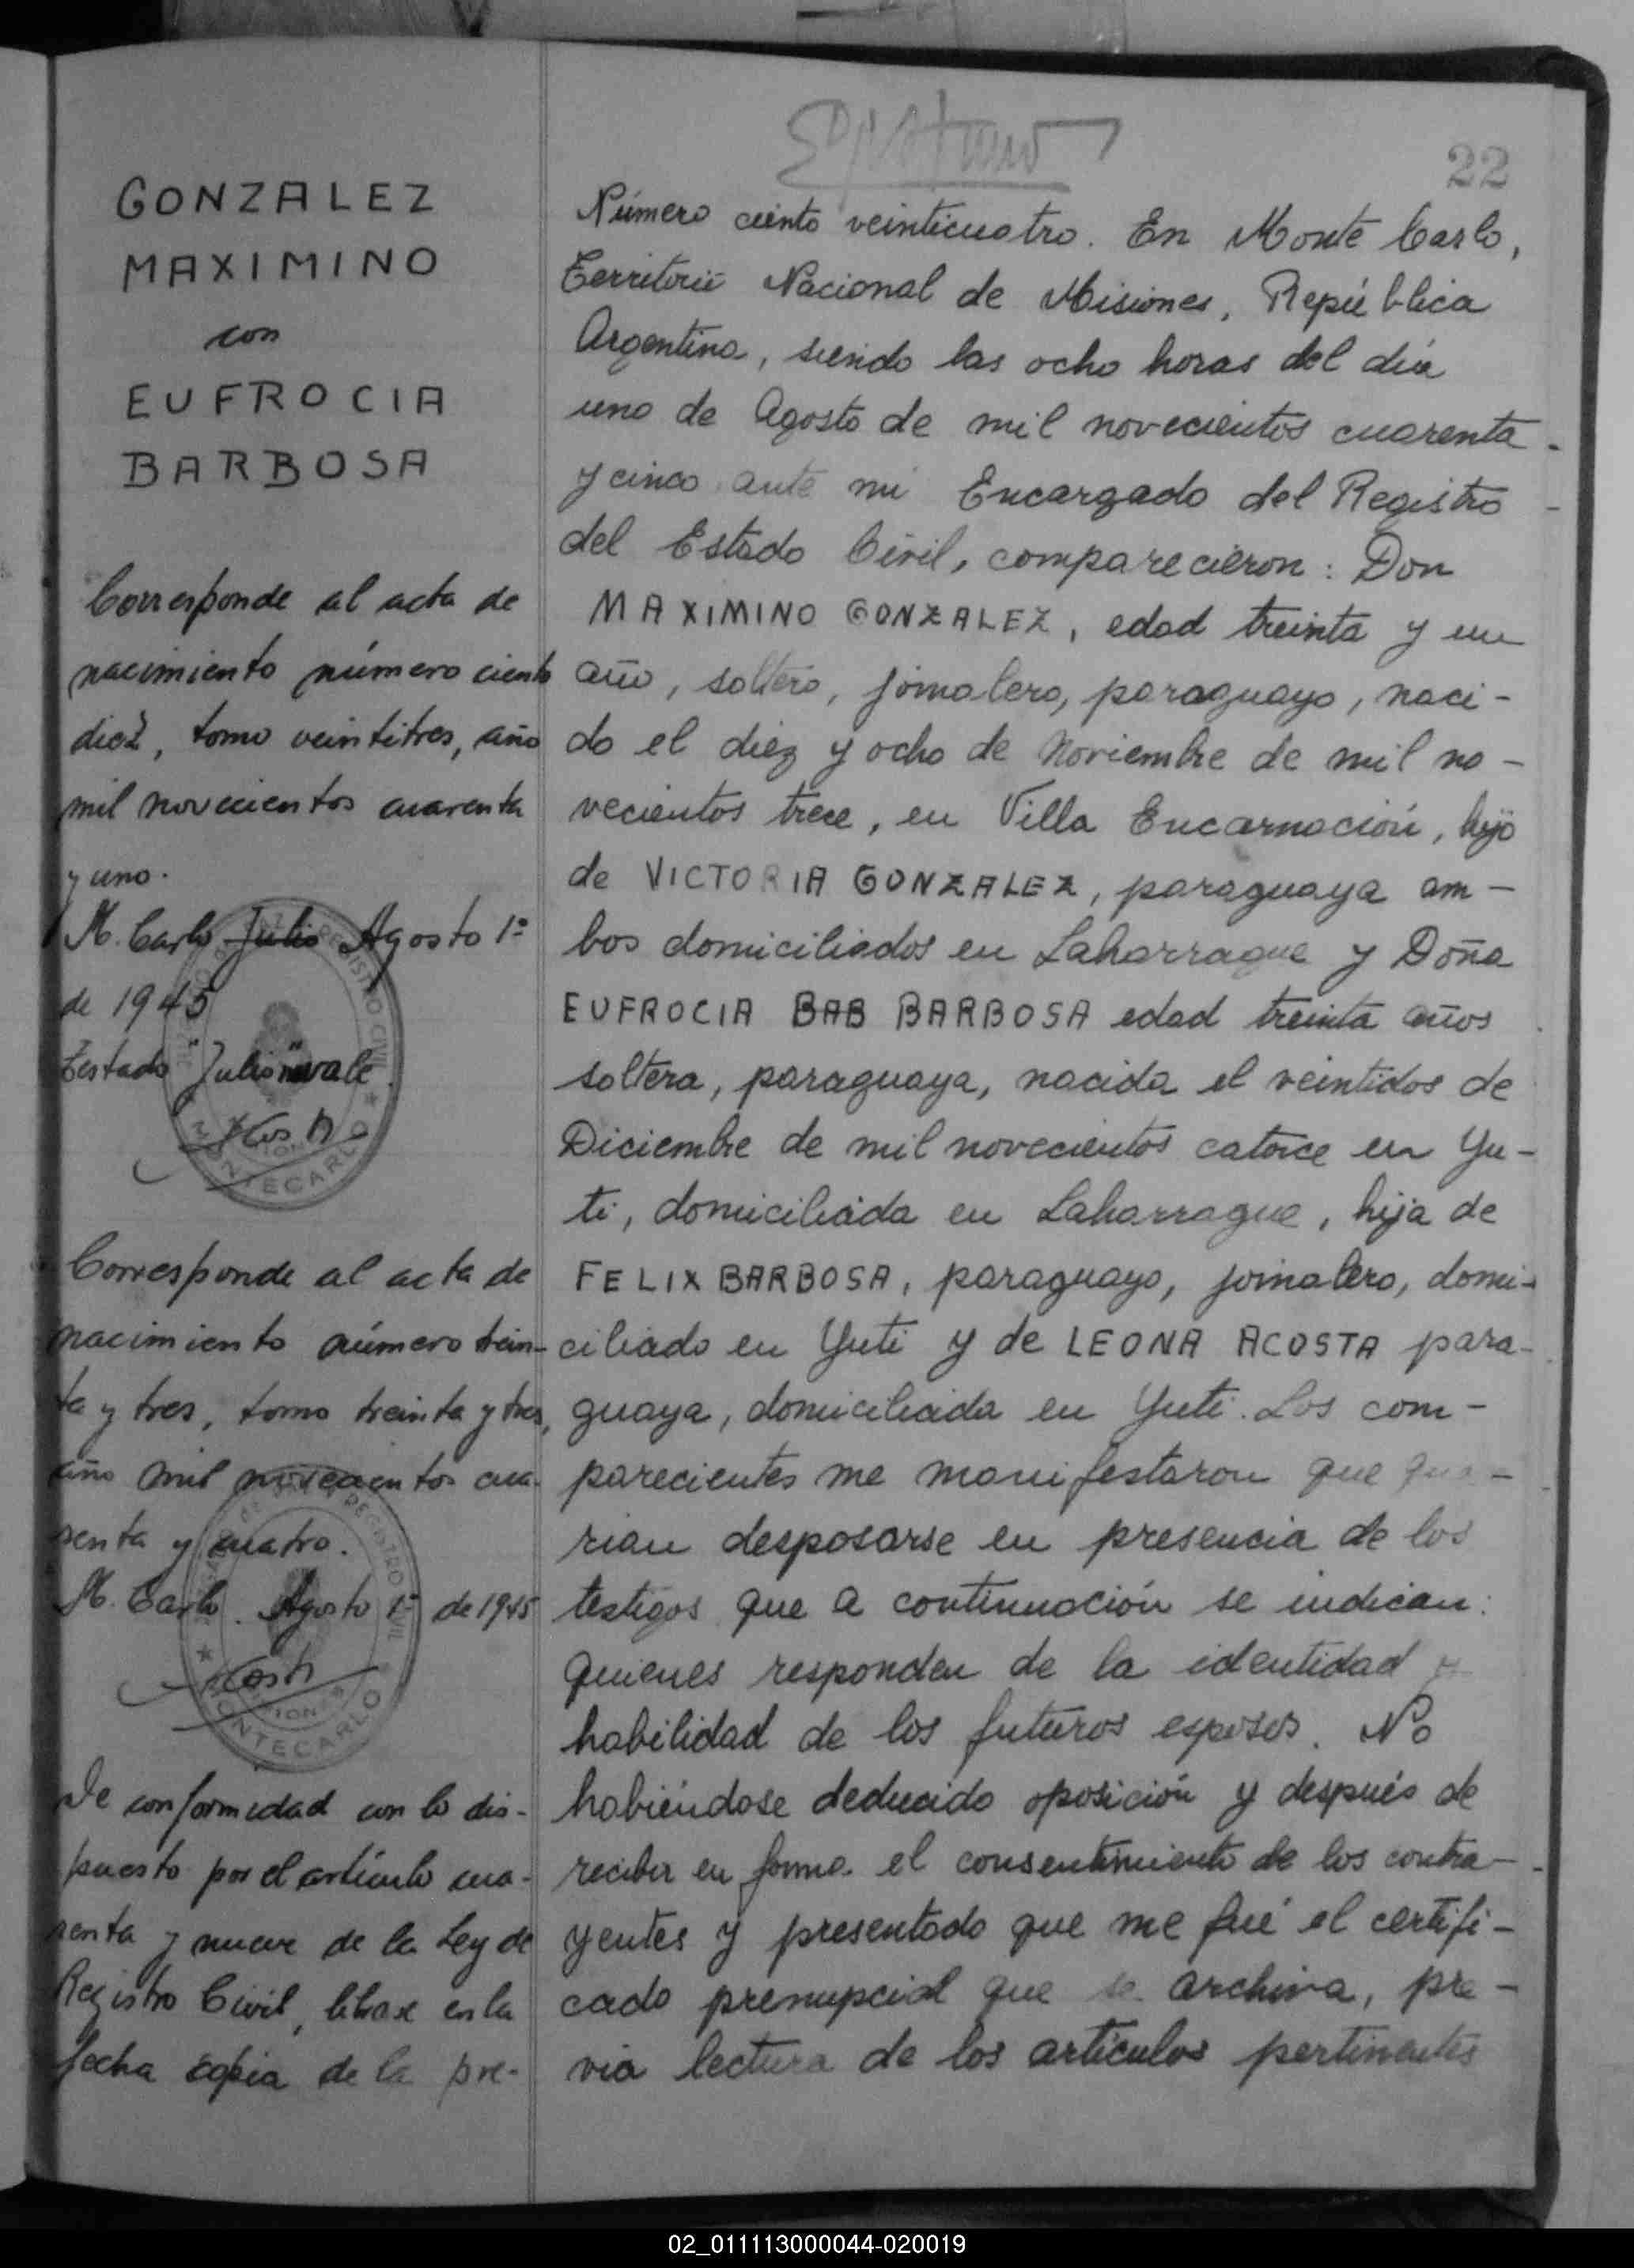 22
GONZALEZ
MAXIMINO
con
EUFROCIA
BARBOSA
Corresponde al acta de
nacimiento número ciento
diez, tomo veintitres, año
mil novecientos cuarenta
y uno.
M. Carlo Julio Agosto 1º
de 1945
Testado "Julio" no vale.
REGISTRO CIVIL
MONTECARLO
Corresponde al acta de
nacimiento número trein-
ta y tres, tomo treinta y tres,
año mil novecientos cua-
renta y cuatro.
M. Carlo. Agosto 1º de 1945
REGISTRO CIVIL
MONTECARLO
De conformidad con lo dis-
puesto por el artículo cua-
renta y nueve de la Ley de
Registro Civil, líbrase en la
fecha copia de la pre-
Número ciento veinticuatro. En Monte Carlo,
Territorio Nacional de Misiones, República
Argentina, siendo las ocho horas del día
uno de Agosto de mil novecientos cuarenta
y cinco ante mi Encargado del Registro
del Estado Civil, comparecieron: Don
MAXIMINO GONZALEZ, edad treinta y un
año, soltero, jornalero, paraguayo, naci-
do el diez y ocho de Noviembre de mil no-
vecientos trece, en Villa Encarnación, hijo
de VICTORIA GONZALEZ, paraguaya am-
bos domiciliados en Laharrague y Doña
EUFROCIA BAB BARBOSA edad treinta años
soltera, paraguaya, nacida el veintidos de
Diciembre de mil novecientos catorce en Yu-
ti, domiciliada en Laharrague, hija de
FELIX BARBOSA, paraguayo, jornalero, domi-
ciliado en Yuti y de LEONA ACOSTA para-
guaya, domiciliada en Yuti. Los com-
parecientes me manifestaron que que-
rian desposarse en presencia de los
testigos que a continuación se indican:
quienes responden de la identidad y
habilidad de los futuros esposos. No
habiéndose deducido oposición y después de
recibir en forma el consentimiento de los contra-
yentes y presentado que me fué el certifi-
cado prenupcial que se archiva, pre-
via lectura de los artículos pertinentes
02_011113000044-020019